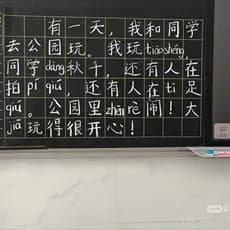 有一天，我和同学
去公园玩。我玩tiàoshéng
同学dàng秋千，还有人在
拍pí qiú，还有人在tī足
qiú。公园里zhēn rè闹！大
jiā玩得很开心！